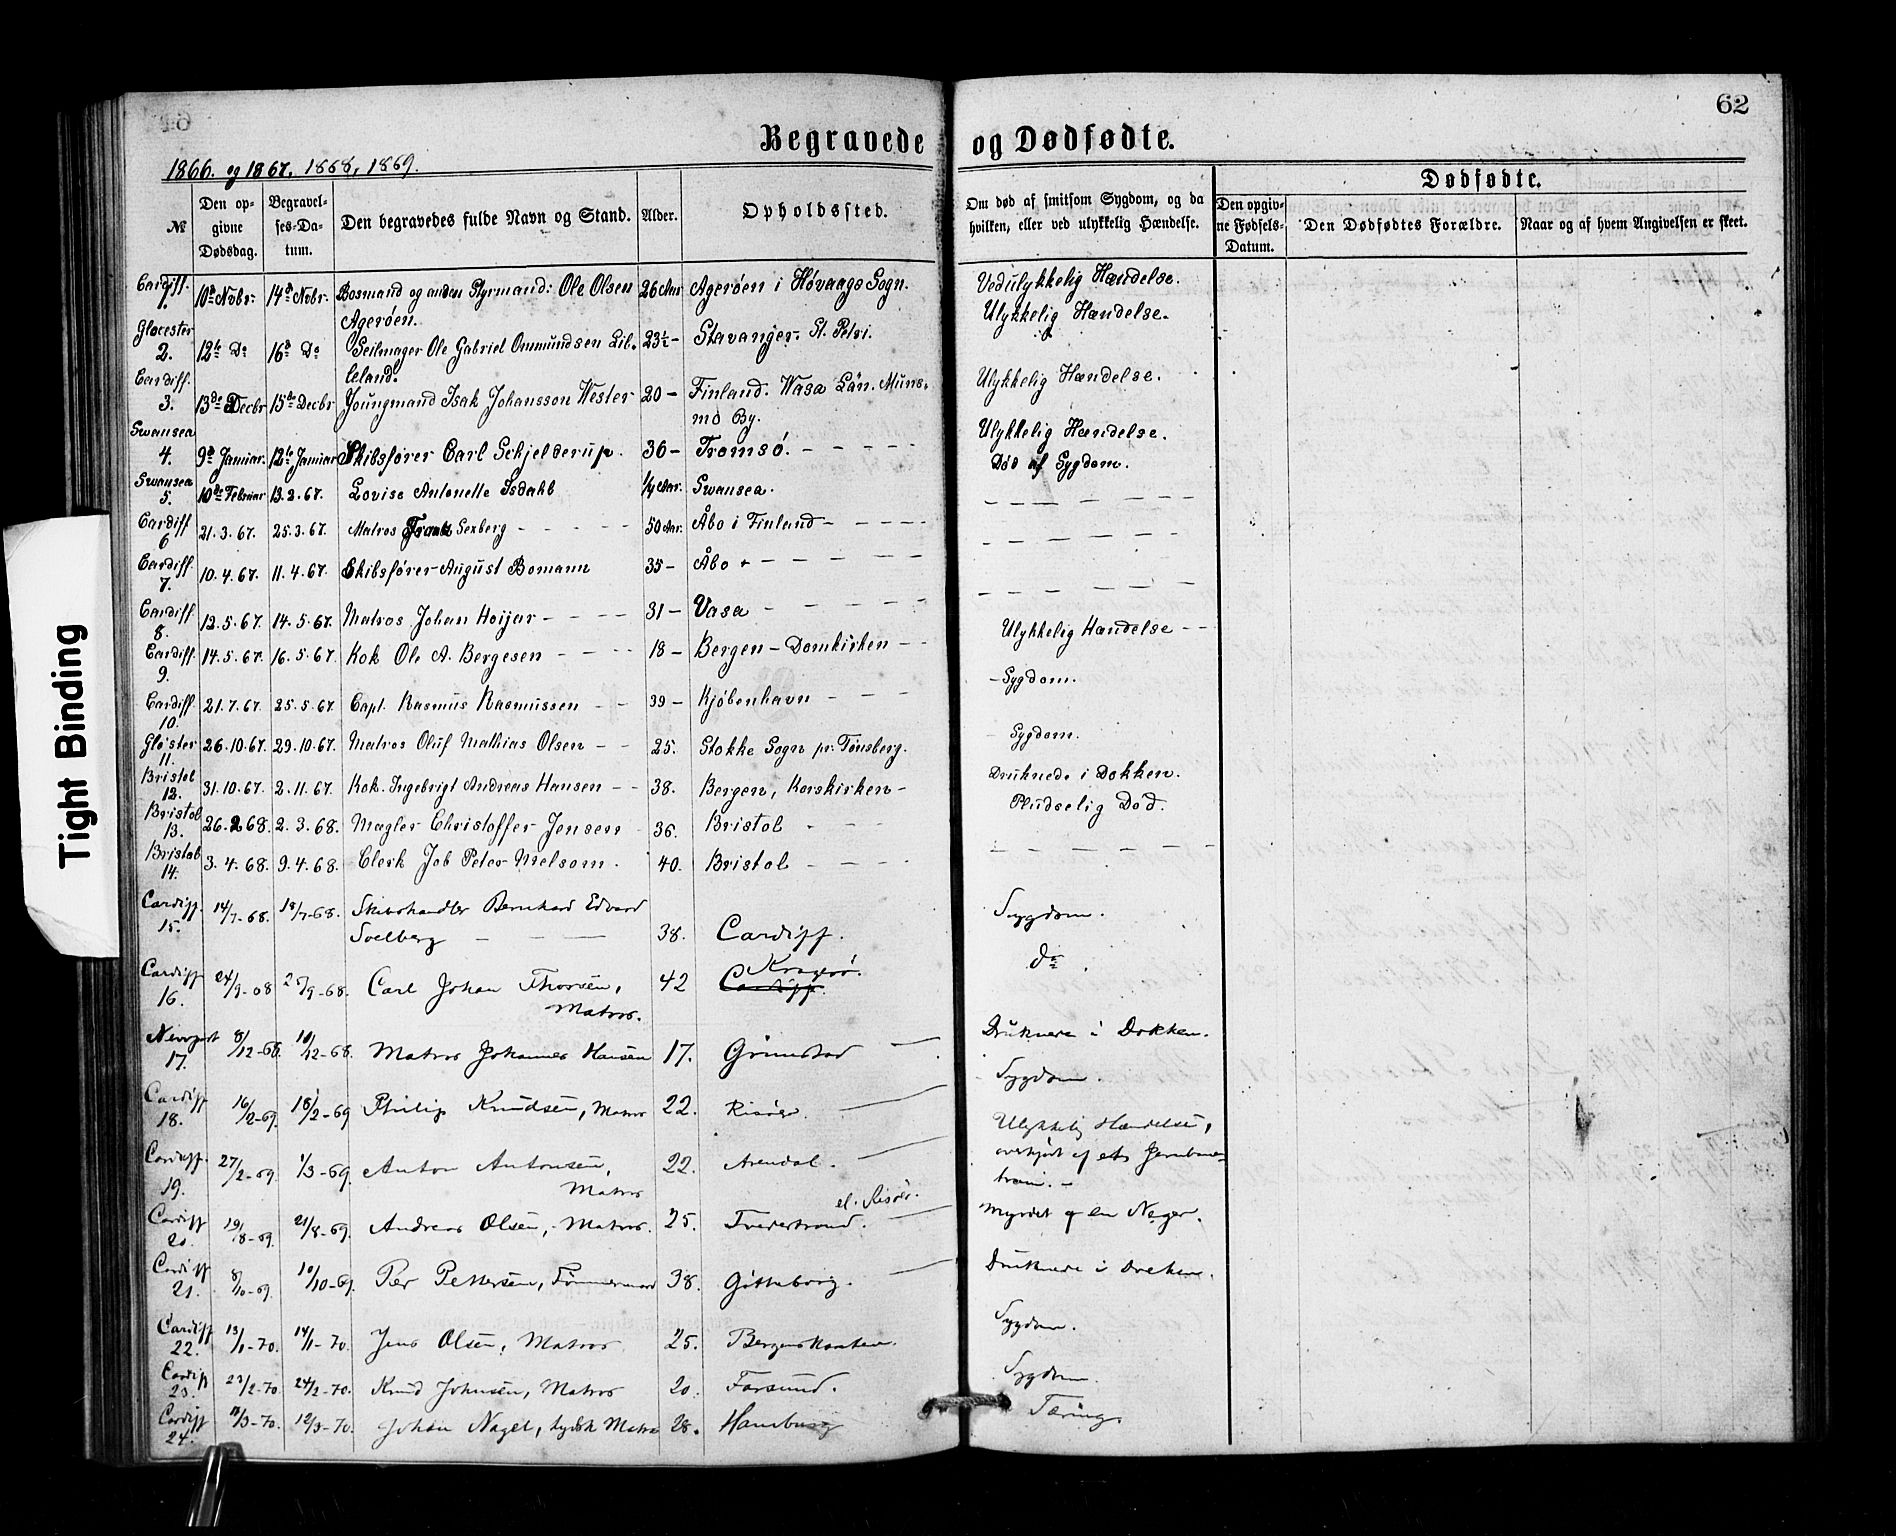 64
62
Begravede og Dødfødte.
1866. og 1867. 1868, 1869.
№
Den opgivne Dødsdag.
Begravelses-Datum.
Den begravedes fulde Navn og Stand.
Alder.
Opholdssted.
Om død af smitsom Sygdom, og da hvilken, eller ved ulykkelig Hændelse.
Dødfødte.
Den opgivne Fødsels-Datum.
Den Dødfødtes Forældre.
Naar og af hvem Angivelsen er skeet.
Cardiff. 1. 10d Nvbr. 14d Nvbr. Bosmand og anden Styrmand: Ole Olsen 26 Aar Agerøen i Høvaags Sogn. Ved ulykkelig Hændelse.
Agerøen. Ulykkelig Hændelse.
Glocester 2. 12te Do 16d Do Seilmager Ole Gabriel Ommundsen Lil- 23½ - Stavanger. St. Petri.
leland.
Cardiff. 3. 13de Decbr 15de Decbr Joungmand Isak Johansson Wester 20 - Finland. Wasa Län. Muns- Ulykkelig Hændelse.
mo By.
Swansea 4. 9d Januar. 12te Januar Skibsfører Carl Schjelderup. 36 - Tromsø. - - - - Ulykkelig Hændelse.
Swansea 5. 10de Februar 13.2.67. Lovise Antonette Isdahl ¼ Aar. Swansea. Død af Sygdom.
Cardiff 6 21.3.67. 25.3.67. Matros Frans Sexberg - - - - 50 Aar. Åbo i Finland - - - - -
Cardiff. 7. 10.4.67. 11.4.67. Skibsfører August Bomann 35 - Åbo - - - - -
Cardiff 8. 12.5.67. 14.5.67. Matros Johan Hoijar - - - - 31 - Vasa - - - - -
Cardiff 9. 14.5.67. 16.5.67. Kok Ole A. Bergesen - - - - 18 - Bergen - Domkirken - - Ulykkelig Hændelse - -
Cardiff. 10. 21.7.67. 25.5.67. Capt. Rasmus Rasmussen - - 39 - Kjøbenhavn - - - - Sygdom.
Gloster 11. 26.10.67. 29.10.67. Matros Oluf Mathias Olsen - - 25. Stokke Sogn pr. Tønsberg. - Sygdom.
Bristol 12. 31.10.67. 2.11.67. Kok. Ingebrigt Andreas Hansen - - 38. Bergen, Korskirken - Druknede i Dokken.
Bristol 13. 26.2.68. 2.3.68. Mægler Christoffer Jensen 36. Bristol - - - Pludselig Død.
Bristol 14. 3.4.68. 9.4.68. Clerk Job Peter Melsom. 40. Bristol - - - -
Cardiff. 15. 14/7-68. 18/7-68. Skibshandler Bernhard Edvard
Soelberg - - - 38. Cardiff. Sygdom.
Cardiff 16. 24/9-68 2 /9-68. Carl Johan Thorsen, 42 Cardiff. Kragerø. do
Matros.
Newport 17. 8/12-68. 10/12-68. Matros Johannes Hansen 17. Grimstad - Druknede i Dokken.
Cardiff 18. 16/2-69. 18/2-69 Philip Knudsen, Matros 22. Risøer. - Sygdom.
Cardiff. 19. 27/2-69. 1/3-69. Anton Antonsen, 22. Arendal. - Ulykkelig Hændelse,
Matros overkjørt af et Jernbane-
train. -
Cardiff 20. 19/8-69. 21/8-69. Andreas Olsen, Matros. 25. Tvedestrand. el. Risør. Myrdet af en Neger.
Cardiff 21. 8/10-69. 10/10-69. Per Pettersen, Tømmermand 38. Gøtteborg. - Druknede i Docken.
Cardiff 22. 13/1-70. 14/1-70. Jens Olsen, Matros 25. Bergenskanten. Sygdom.
Cardiff 23. 23/2-70. 24/2-70. Knud Johnsen, Matros 20. Farsund. Sygdom.
Cardiff 24. 11/3-70. 12/3-70. Johan Nagel, tydsk Matros 28. Hamburg Tæring.
Tight Binding